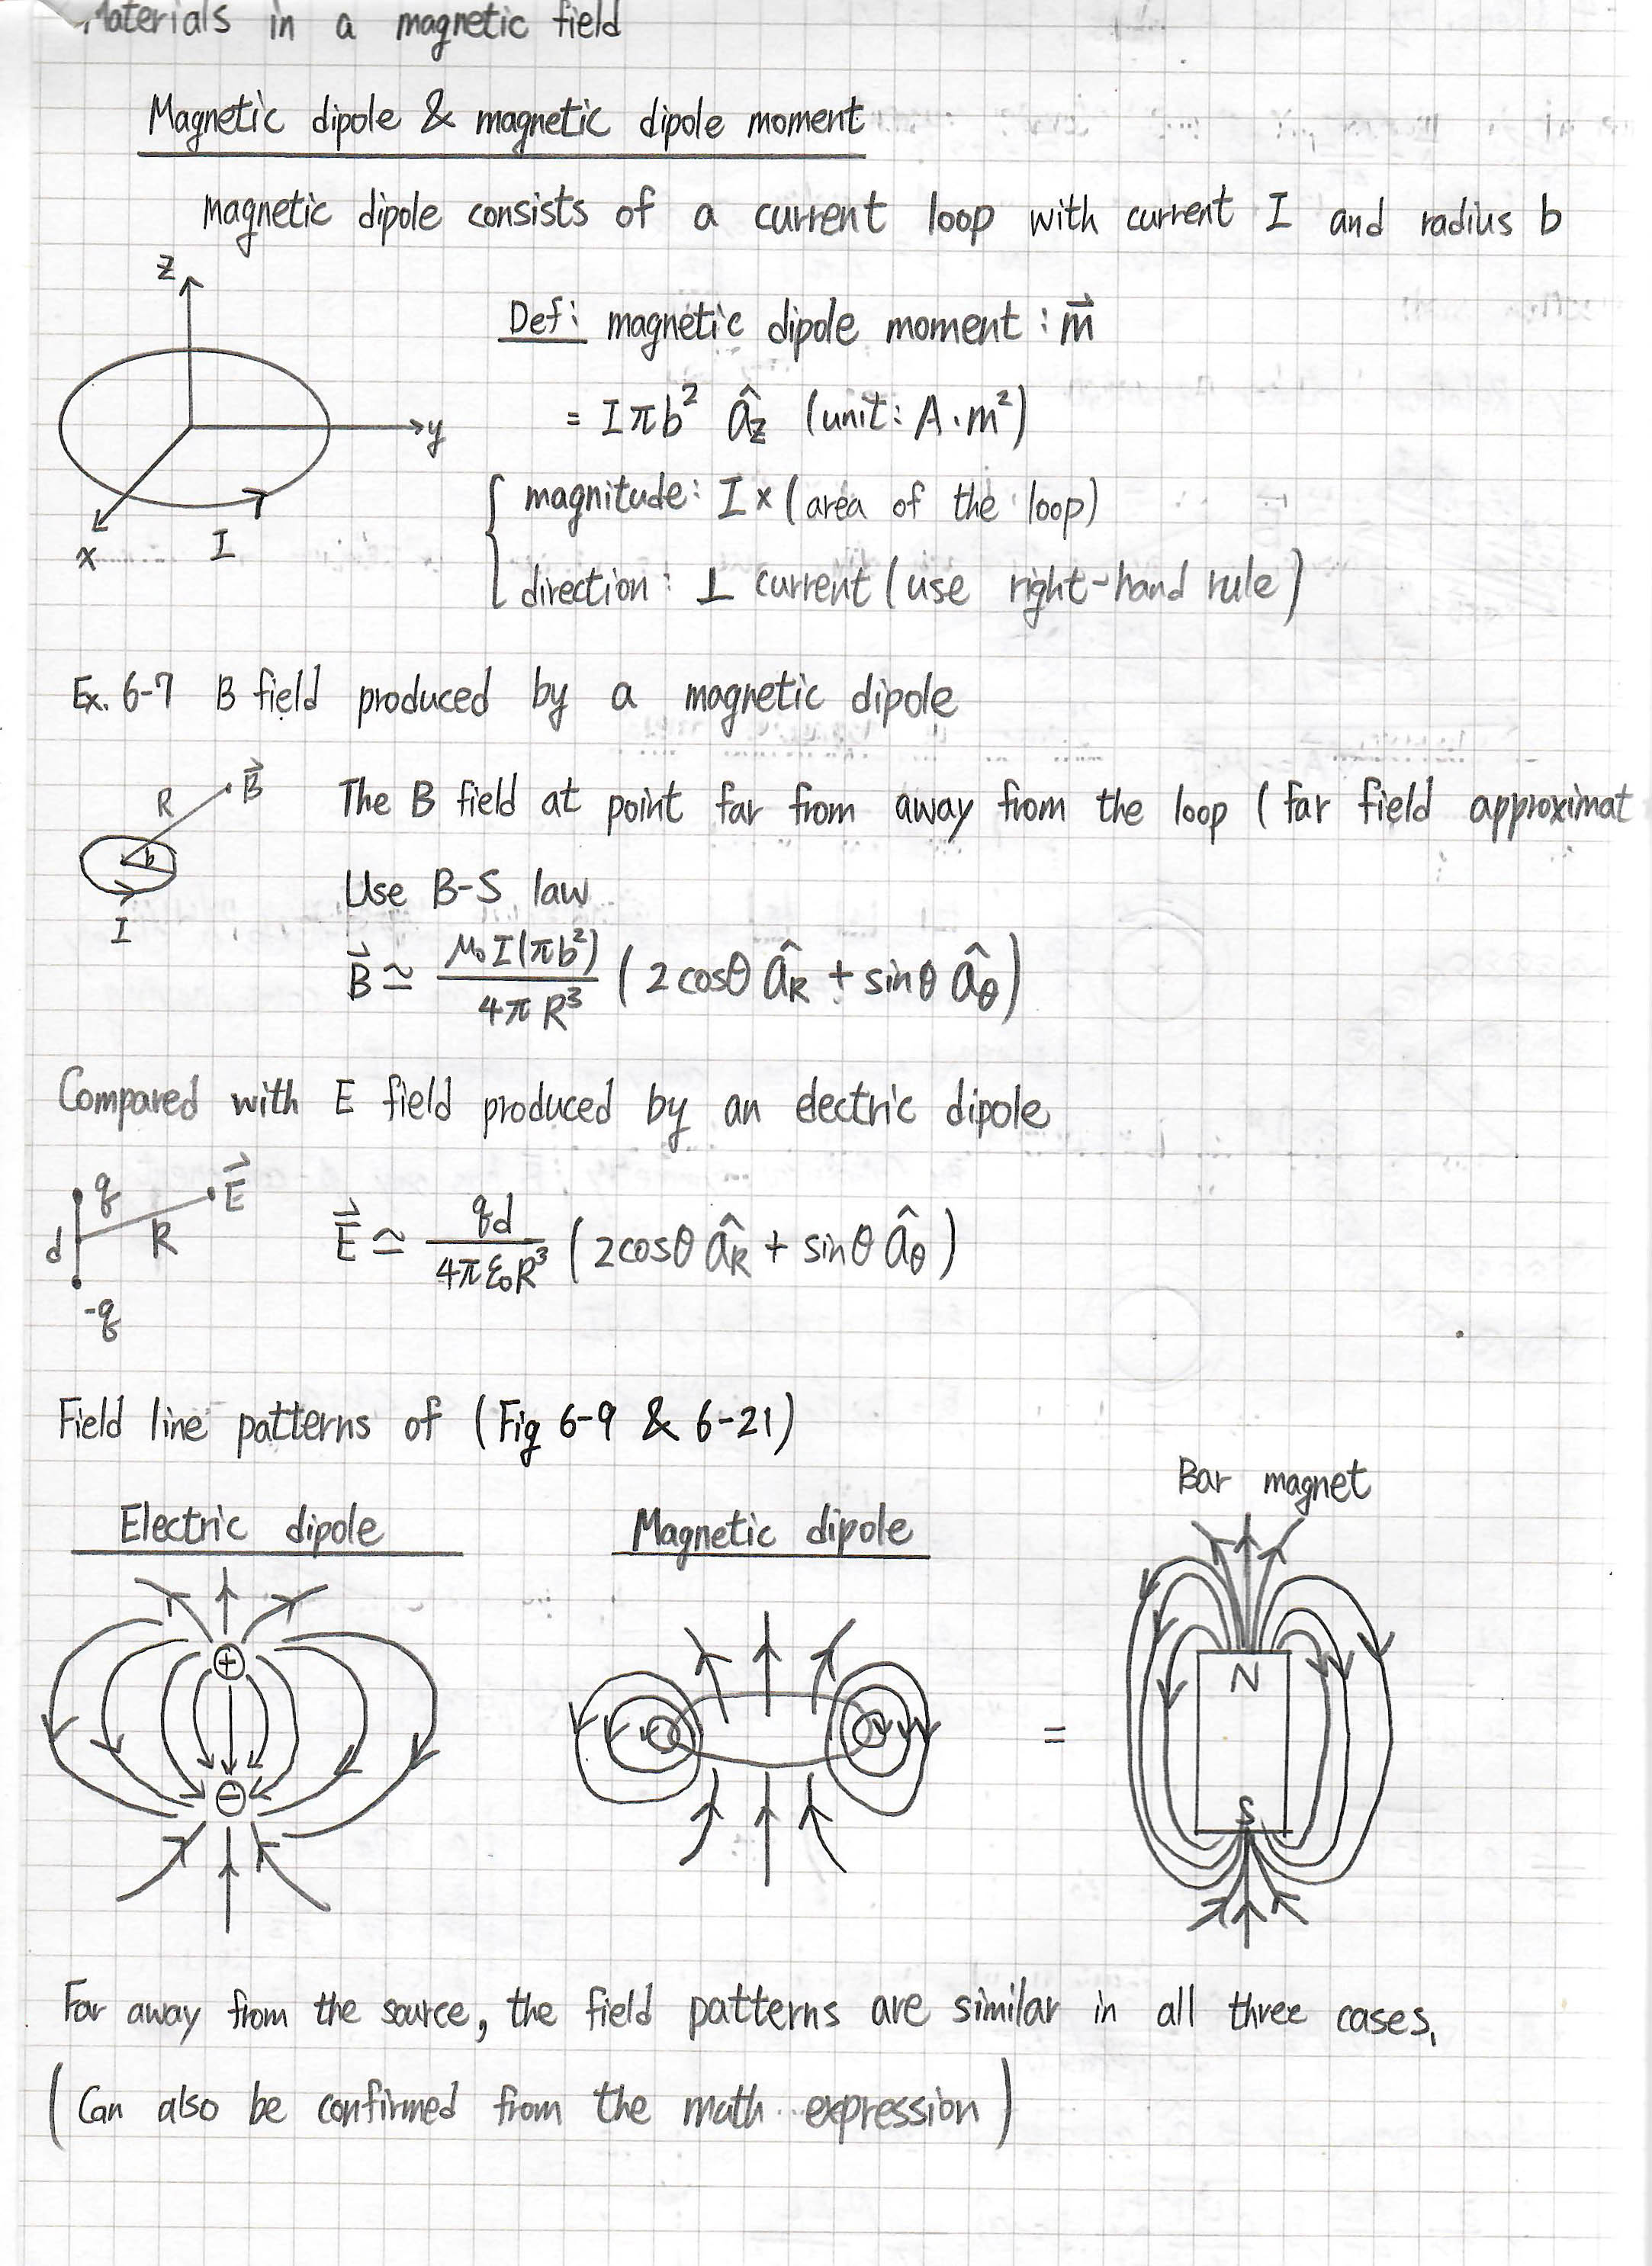 Materials in a magnetic field
Magnetic dipole & magnetic dipole moment
magnetic dipole consists of a current loop with current I and radius b
z
y
x
I
Def: magnetic dipole moment : m⃗
= Iπb² â_z (unit: A·m²)
magnitude: I × (area of the loop)
direction: ⊥ current (use right-hand rule)
Ex. 6-7 B field produced by a magnetic dipole
R
B⃗
b
I
The B field at point far from away from the loop (far field approximat
Use B-S law
B⃗ ≃ μ₀I(πb²) / 4πR³ (2cosθ â_R + sinθ â_θ)
Compared with E field produced by an electric dipole
q
E⃗
d
R
-q
E⃗ ≃ qd / 4πε₀R³ (2cosθ â_R + sinθ â_θ)
Field line patterns of (Fig 6-9 & 6-21)
Electric dipole
Magnetic dipole
Bar magnet
+
−
=
N
S
Far away from the source, the field patterns are similar in all three cases.
(Can also be confirmed from the math expression)